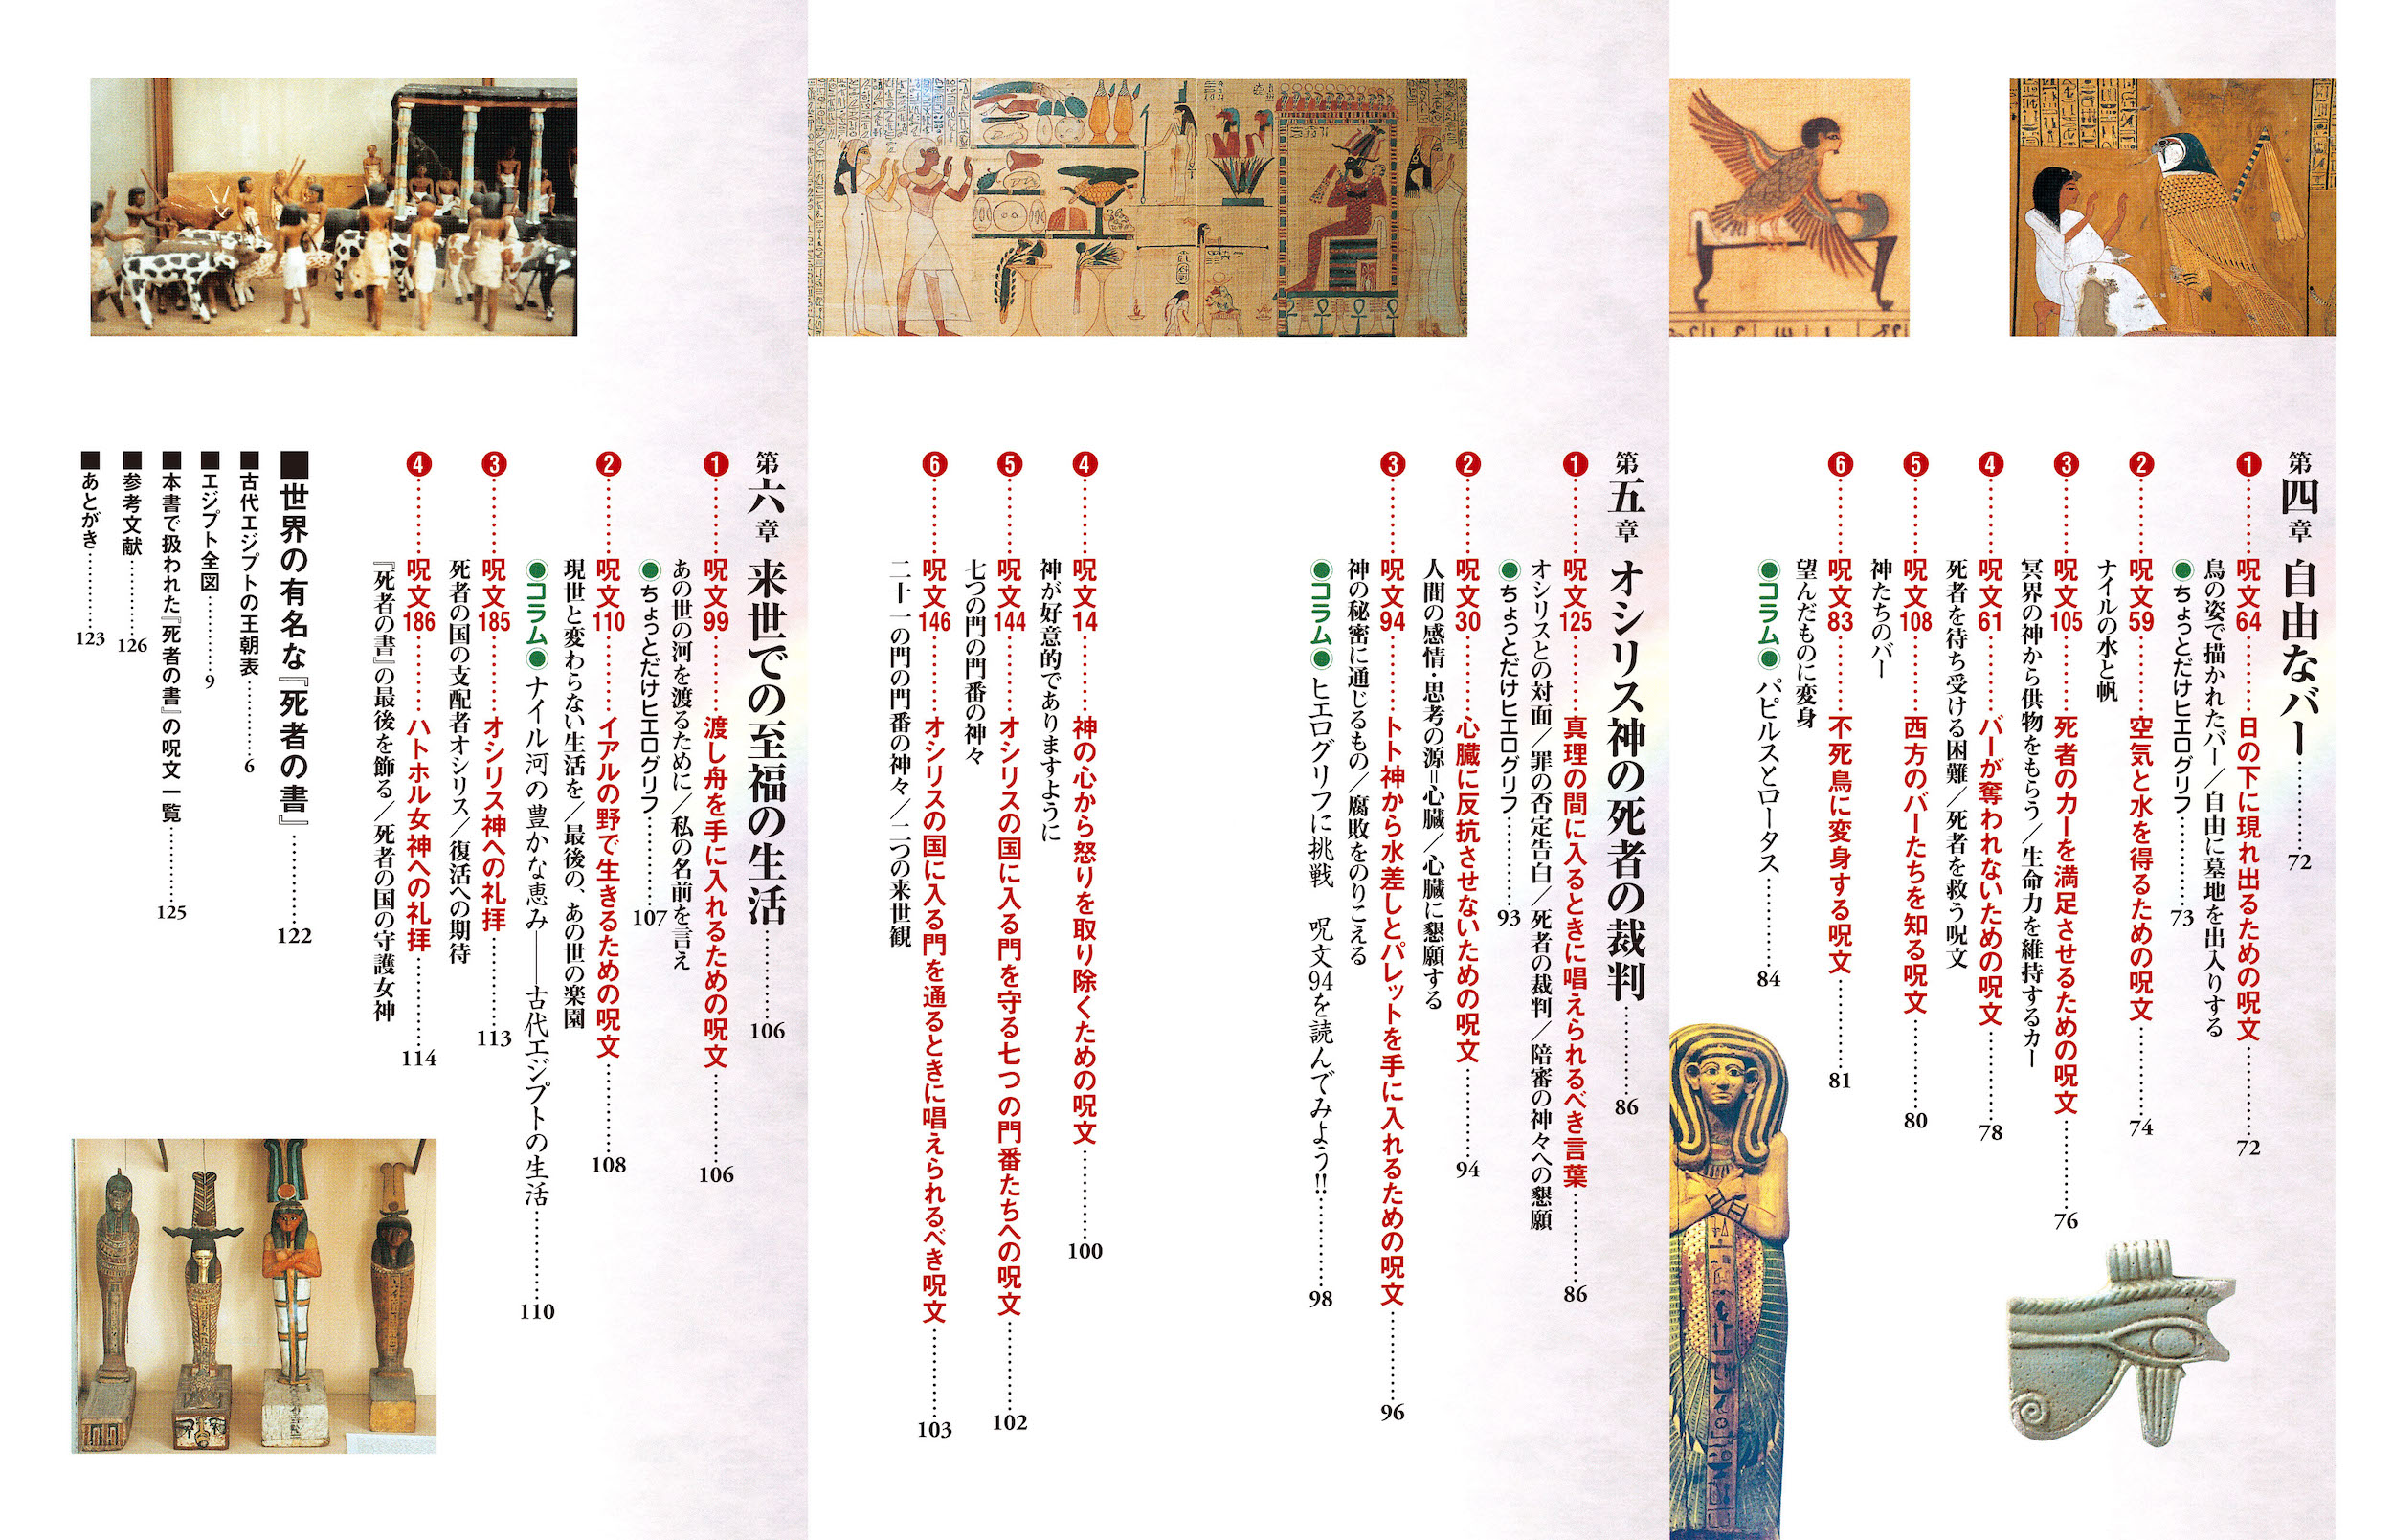 第四章 自由なバー…………72
❶………呪文64………日の下に現れ出るための呪文…………72
鳥の姿で描かれたバー／自由に墓地を出入りする
●ちょっとだけヒエログリフ…………73
❷………呪文59………空気と水を得るための呪文…………74
ナイルの水と帆
❸………呪文105………死者のカーを満足させるための呪文…………76
冥界の神から供物をもらう／生命力を維持するカー
❹………呪文61………バーが奪われないための呪文…………78
死者を待ち受ける困難／死者を救う呪文
❺………呪文108………西方のバーたちを知る呪文…………80
神たちのバー
❻………呪文83………不死鳥に変身する呪文…………81
望んだものに変身
●コラム● パピルスとロータス…………84
第五章 オシリス神の死者の裁判…………86
❶………呪文125………真理の間に入るときに唱えられるべき言葉…………86
オシリスとの対面／罪の否定告白／死者の裁判／陪審の神々への懇願
●ちょっとだけヒエログリフ…………93
❷………呪文30………心臓に反抗させないための呪文…………94
人間の感情・思考の源=心臓／心臓に懇願する
❸………呪文94………トト神から水差しとパレットを手に入れるための呪文…………96
神の秘密に通じるもの／腐敗をのりこえる
●コラム● ヒエログリフに挑戦 呪文94を読んでみよう!!…………98
❹………呪文14………神の心から怒りを取り除くための呪文…………100
神が好意的でありますように
❺………呪文144………オシリスの国に入る門を守る七つの門番たちへの呪文…………102
七つの門の門番の神々
❻………呪文146………オシリスの国に入る門を通るときに唱えられるべき呪文…………103
二十一の門の門番の神々／二つの来世観
第六章 来世での至福の生活…………106
❶………呪文99………渡し舟を手に入れるための呪文…………106
あの世の河を渡るために／私の名前を言え
●ちょっとだけヒエログリフ…………107
❷………呪文110………イアルの野で生きるための呪文…………108
現世と変わらない生活を／最後の、あの世の楽園
●コラム● ナイル河の豊かな恵み――古代エジプトの生活…………110
❸………呪文185………オシリス神への礼拝…………113
死者の国の支配者オシリス／復活への期待
❹………呪文186………ハトホル女神への礼拝…………114
『死者の書』の最後を飾る／死者の国の守護女神
■世界の有名な『死者の書』…………122
■古代エジプトの王朝表…………6
■エジプト全図…………9
■本書で扱われた『死者の書』の呪文一覧…………125
■参考文献…………126
■あとがき…………123